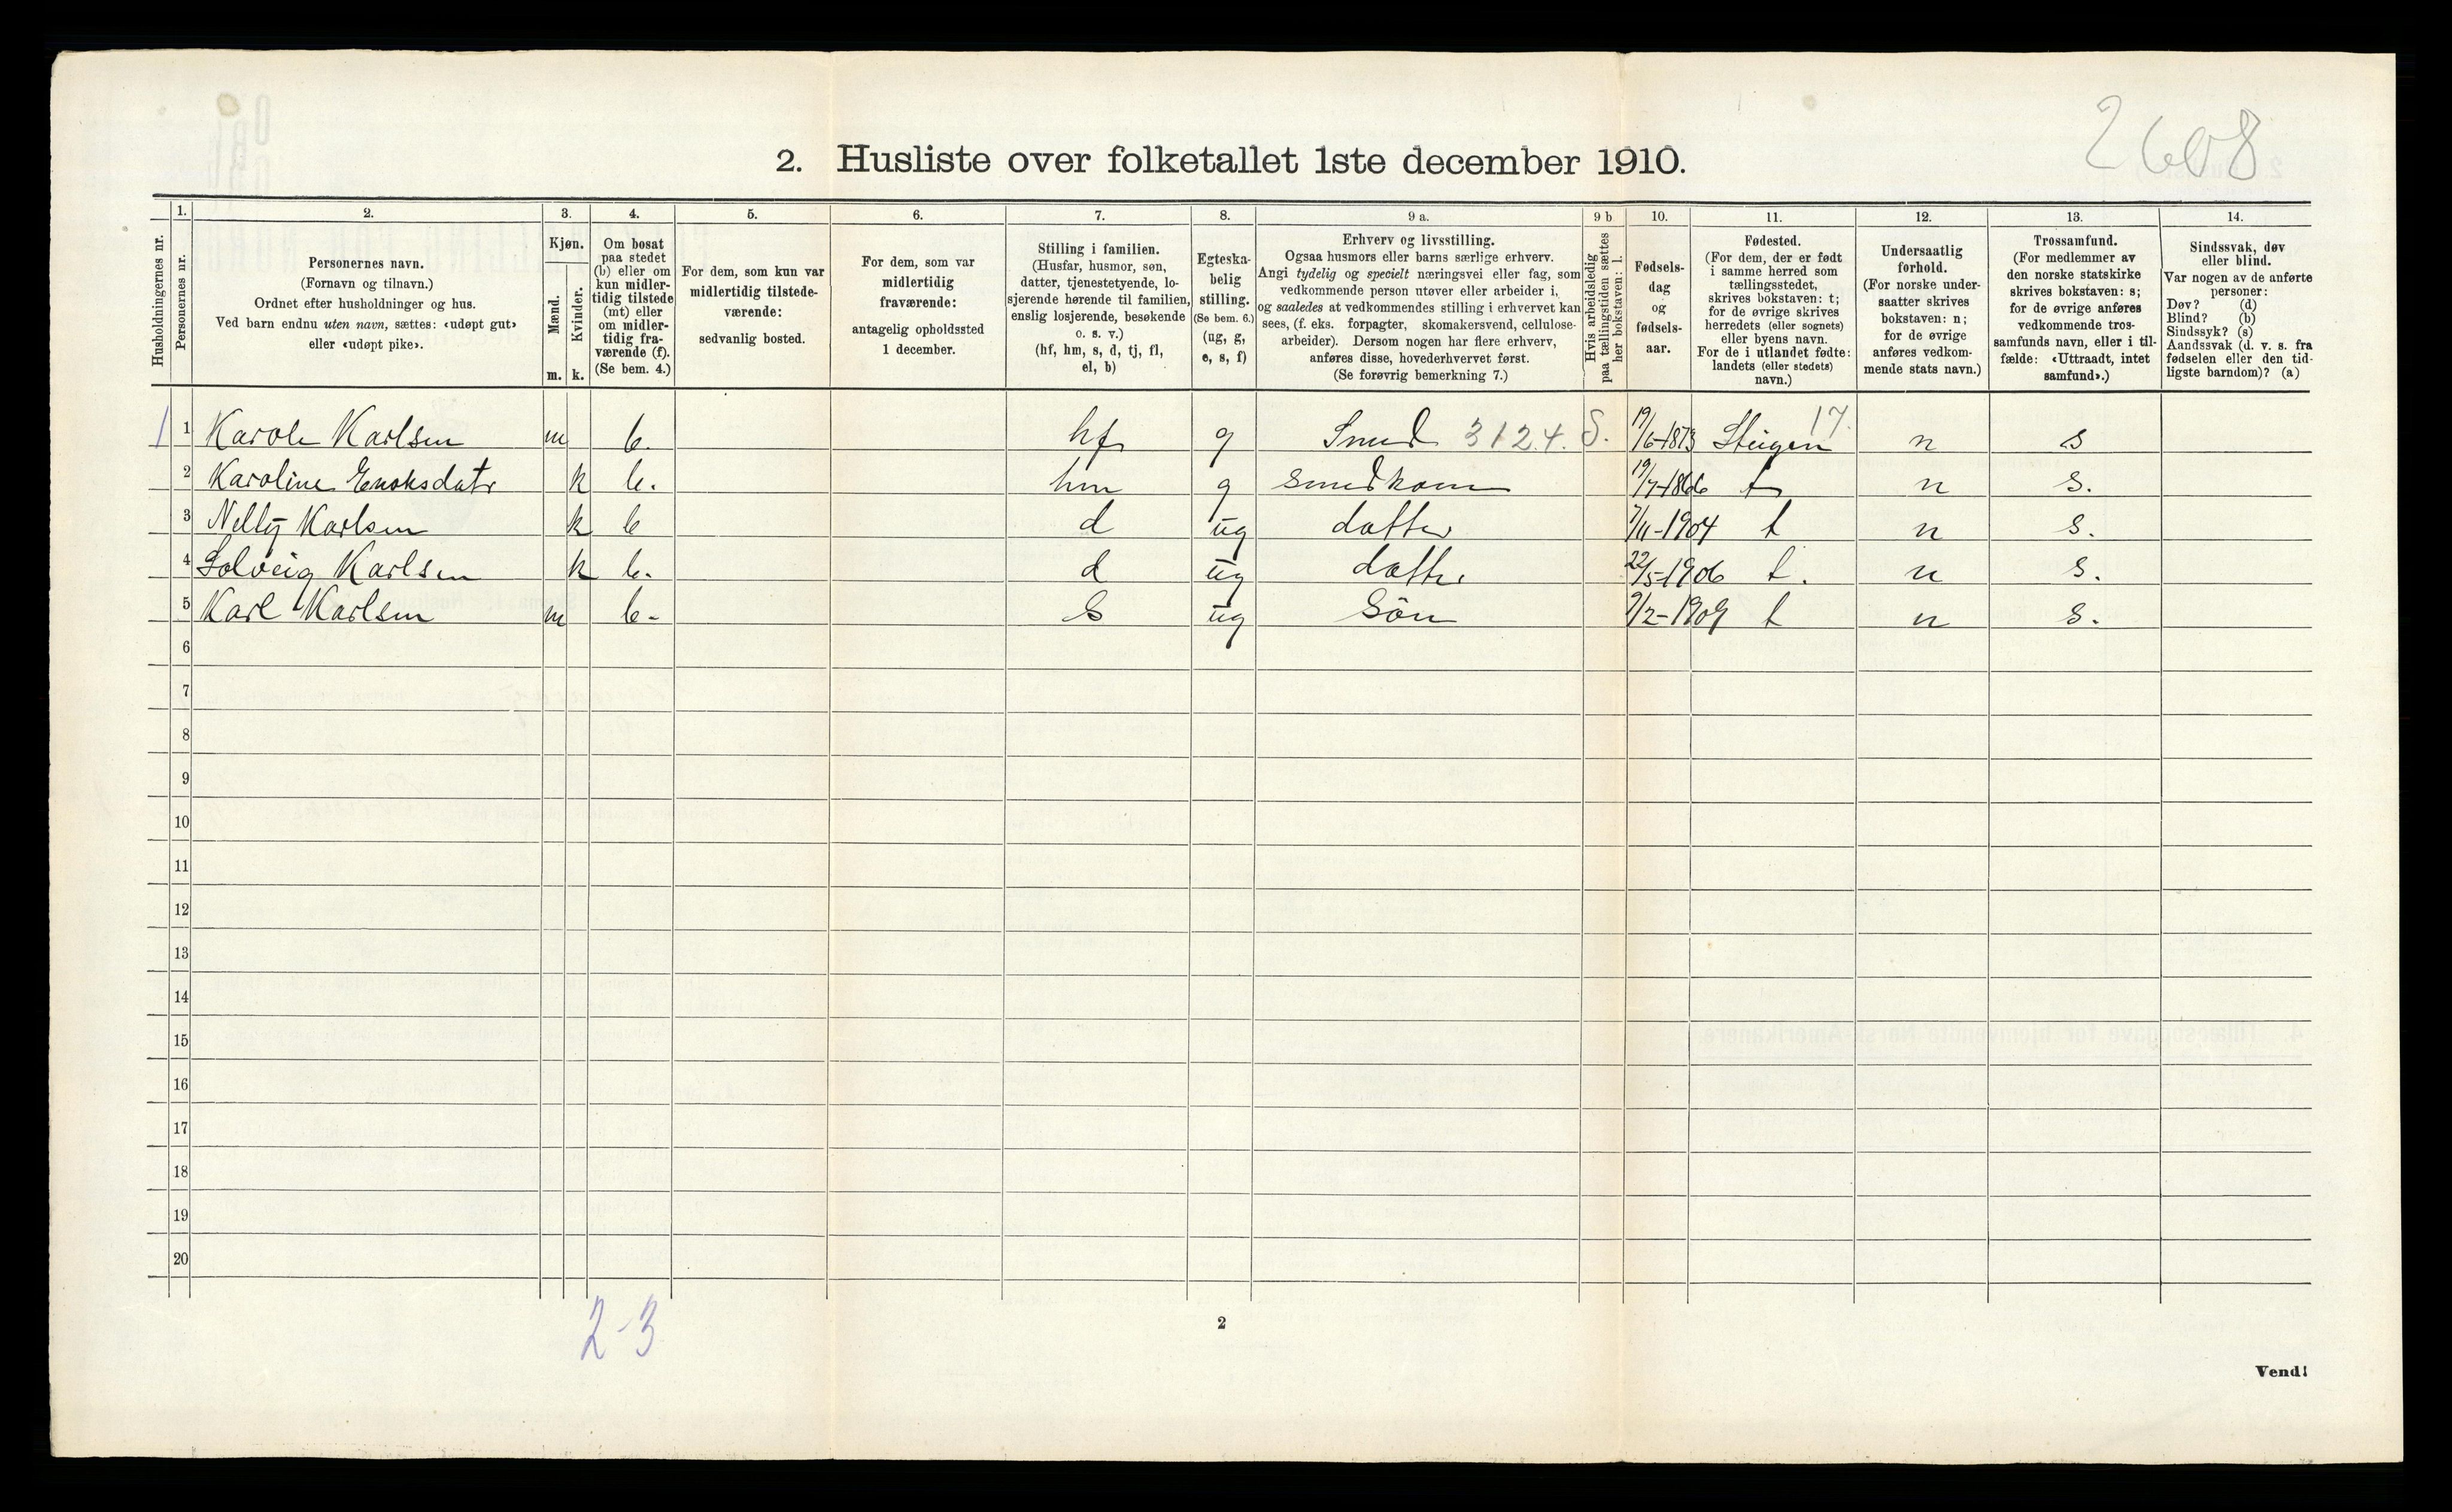 2608
2. Husliste over folketallet 1ste december 1910.
Husholdningernes nr.
1. Personernes nr.
2. Personernes navn. (Fornavn og tilnavn.) Ordnet efter husholdninger og hus. Ved barn endnu uten navn, sættes: «udøpt gut» eller «udøpt pike».
3. Kjøn. Mænd. m. Kvinder. k.
4. Om bosat paa stedet (b) eller om kun midlertidig tilstede (mt) eller om midlertidig fraværende (f). (Se bem. 4.)
5. For dem, som kun var midlertidig tilstedeværende: sedvanlig bosted.
6. For dem, som var midlertidig fraværende: antagelig opholdssted 1 december.
7. Stilling i familien. (Husfar, husmor, søn, datter, tjenestetyende, losjerende hørende til familien, enslig losjerende, besøkende o. s. v.) (hf, hm, s, d, tj, fl, el, b)
8. Egteskabelig stilling. (Se bem. 6.) (ug, g, e, s, f)
9 a. Erhverv og livsstilling. Ogsaa husmors eller barns særlige erhverv. Angi tydelig og specielt næringsvei eller fag, som vedkommende person utøver eller arbeider i, og saaledes at vedkommendes stilling i erhvervet kan sees, (f. eks. forpagter, skomakersvend, cellulosearbeider). Dersom nogen har flere erhverv, anføres disse, hovederhvervet først. (Se forøvrig bemerkning 7.)
9 b Hvis arbeidsledig paa tællingstiden sættes her bokstaven: l.
10. Fødselsdag og fødselsaar.
11. Fødested. (For dem, der er født i samme herred som tællingsstedet, skrives bokstaven: t; for de øvrige skrives herredets (eller sognets) eller byens navn. For de i utlandet fødte: landets (eller stedets) navn.)
12. Undersaatlig forhold. (For norske undersaatter skrives bokstaven: n; for de øvrige anføres vedkommende stats navn.)
13. Trossamfund. (For medlemmer av den norske statskirke skrives bokstaven: s; for de øvrige anføres vedkommende trossamfunds navn, eller i tilfælde: «Uttraadt, intet samfund».)
14. Sindssvak, døv eller blind. Var nogen av de anførte personer: Døv? (d) Blind? (b) Sindssyk? (s) Aandssvak (d. v. s. fra fødselen eller den tidligste barndom)? (a)
1 1 Karole Karlsen m b. hf g Smed 3124. S. 19/6-1873 Steigen 17. n s
2 Karoline Enoksdatr k b. hm g smedkone 19/7-1866 t n s.
3 Nelly Karlsen k b d ug datter 7/11-1904 t n s.
4 Solveig Karlsen k b. d ug datter 22/5-1906 t. n s.
5 Karl Karlsen m b- s ug Sön 9/2-1909 t n s.
6
7
8
9
10
11
12
13
14
15
16
17
18
19
20
2-3
2
Vend!